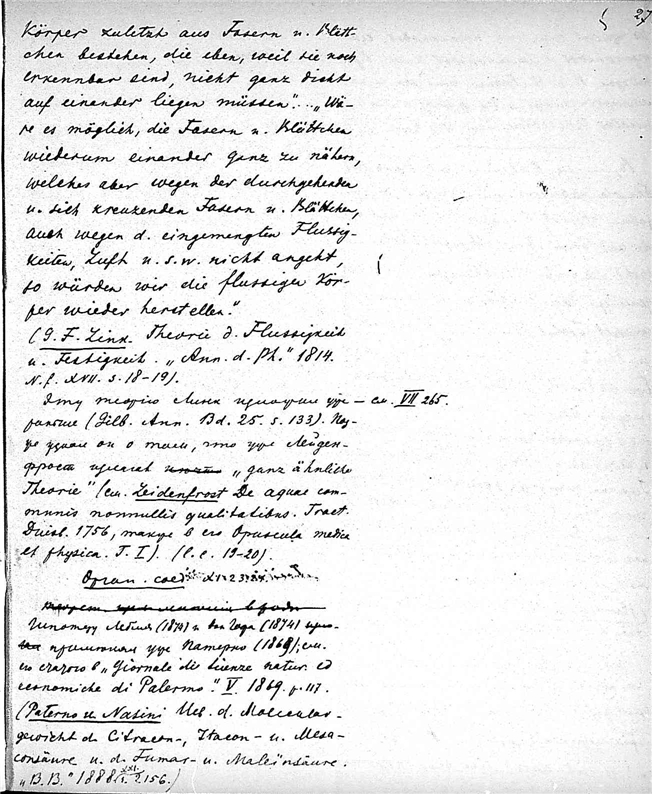 27
Körper zuletzt aus Fasern u. Blätt-
chen bestehen, die eben, weil sie noch
erkennbar sind, nicht ganz dicht
auf einander liegen müssen". „Wä-
re es möglich, die Fasern u. Blättchen
wiederum einander ganz zu nähern,
welches aber wegen der durchgehenden
u. sich kreuzenden Fasern u. Blättchen,
auch wegen d. eingemengten Flussig-
keiten, Luft u. s. w. nicht angeht,
so würden wir die flussigen Kör-
per wieder herstellen."
(G. F. Link. Theorie d. Flussigkeit
u. Festigkeit. „Ann. d. Ph." 1814.
N. f. XVII. s. 18-19).
Эту теорию Линк изложил уже — см. VII 265.
раньше (Gilb. Ann. Bd. 25. s. 133). Поз-
же узнал он о том, что уже Лейден-
фрост излагал „ganz ähnliche
Theorie" (см. Leidenfrost De aquae com-
munis nonnullis qualitatibus. Tract.
Duisb. 1756, также в его Opuscula medica
et physica. T. I). (l. c. 19-20).
Орган. соед.
Гипотезу Лебеля (1874) и Вант Гоффа (1874)
применил уже Патерно (1869); см.
его статью в „Giornale di Scienze natur. ed
economiche di Palermo." V. 1869. p. 117.
(Paterno u. Nasini Ueb. d. Molecular-
gewicht d. Citracon-, Itacon- u. Mesa-
consäure u. d. Fumar- u. Maleïnsäure.
„B. B." 1888 XXI. 2156.)